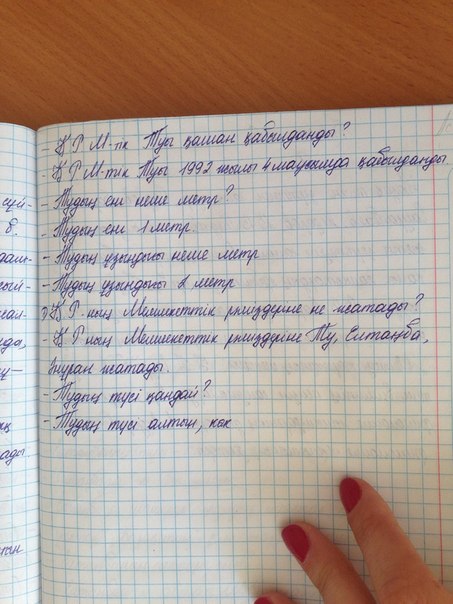 - Қ Р М-тік Туы қашан қабылданды?
- Қ Р М-тік Туы 1992 жылы 4 маусымда қабылданды
- Тудың ені неше метр?
- Тудың ені 1 метр.
- Тудың ұзындығы неше метр
- Тудың ұзындығы 2 метр
- Қ Р-ның Мемлекеттік рәміздеріне не жатады?
- Қ Р ның Мемлекеттік рәміздеріне Ту, Елтаңба,
Әнұран жатады.
- Тудың түсі қандай?
- Тудың түсі алтын, көк